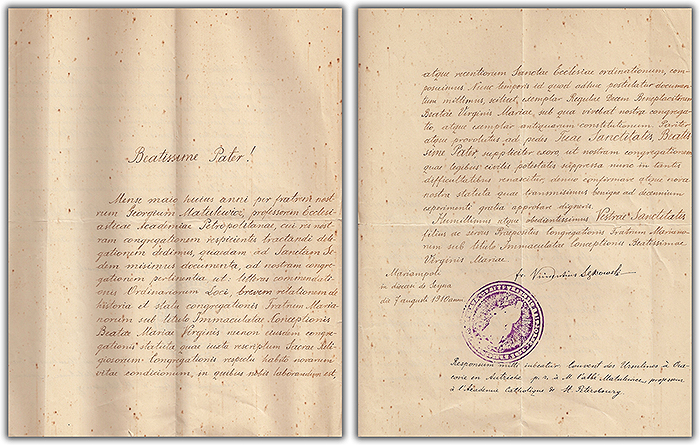 Beatissime Pater!
Mense maio huius anni per fratrem nost-
rum Georgium Matulewicz, professorem Ecclesi-
asticae Academiae Petropolitanae, cui res nost-
ram congregationem respicientes tractandi dele-
gationem dedimus, quaedam ad Sanctam Se-
dem misimus documenta, ad nostram congre-
gationem pertinentia ut: litteras commendati-
onis Ordinariorum Loci, brevem relationem de
historia et statu congregationis Fratrum Maria-
norum sub titulo Immaculatae Conceptionis
Beatae Mariae Virginis necnon eiusdem congre-
gationis statuta quae iuxta rescriptum Sacrae Reli-
giosorum Congregationis respectu habito novarum
vitae condicionum, in quibus nobis laborandum est,
atque recentiorum Sanctae Ecclesiae ordinationum, com-
posuimus. Nunc temporis id quod adhuc postulatur documen-
tum mittimus, scilicet, exemplar Regulae Decem Beneplacitorum
Beatae Virginis Mariae, sub qua vivebat nostra congrega-
tio, atque exemplar antiquarum constitutionum. Pariter
atque provolutus ad pedes Tuae Sanctitatis, Beatis-
sime Pater suppliciter exoro, ut nostram congregationem
quae legibus civilis potestatis suppressa nunc in tantis
difficultatibus renascitur, denuo confirmare atque nova
nostra statuta quae transmisimus benigne ad decennium
experimenti gratia approbare digneris.
Humillimus atque obedientissimus Vestrae Sanctitatis
filius ac servus Praepositus Congregationis Fratrum Mariano-
rum sub titulo Immaculatae Conceptionis Beatissimae
Virginis Mariae.
Mariampoli
in diocesi de Seyna
die 7 augusti 1910 anni
fr. Vincentius Sękowski
Responsum mitti iubeatur Couvent des Ursulines à Cra-
covie en Autriche p. r. à M. l'abbé Matulewicz, professeur
à l'Académie Catholique de St. Petersbourg.